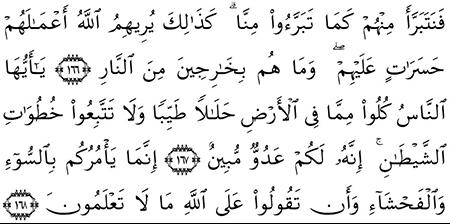 فَنَتَبَرَّأَ مِنْهُمْ كَمَا تَبَرَّءُواْ مِنَّا ۗ كَذَٰلِكَ يُرِيهِمُ ٱللَّهُ أَعْمَـٰلَهُمْ
حَسَرَٰتٍ عَلَيْهِمْ ۖ وَمَا هُم بِخَـٰرِجِينَ مِنَ ٱلنَّارِ ﴿١٦٦﴾ يَـٰٓأَيُّهَا
ٱلنَّاسُ كُلُواْ مِمَّا فِى ٱلْأَرْضِ حَلَـٰلًا طَيِّبًا وَلَا تَتَّبِعُواْ خُطُوَٰتِ
ٱلشَّيْطَـٰنِ ۚ إِنَّهُۥ لَكُمْ عَدُوٌّ مُّبِينٌ ﴿١٦٧﴾ إِنَّمَا يَأْمُرُكُم بِٱلسُّوٓءِ
وَٱلْفَحْشَآءِ وَأَن تَقُولُواْ عَلَى ٱللَّهِ مَا لَا تَعْلَمُونَ ﴿١٦٨﴾